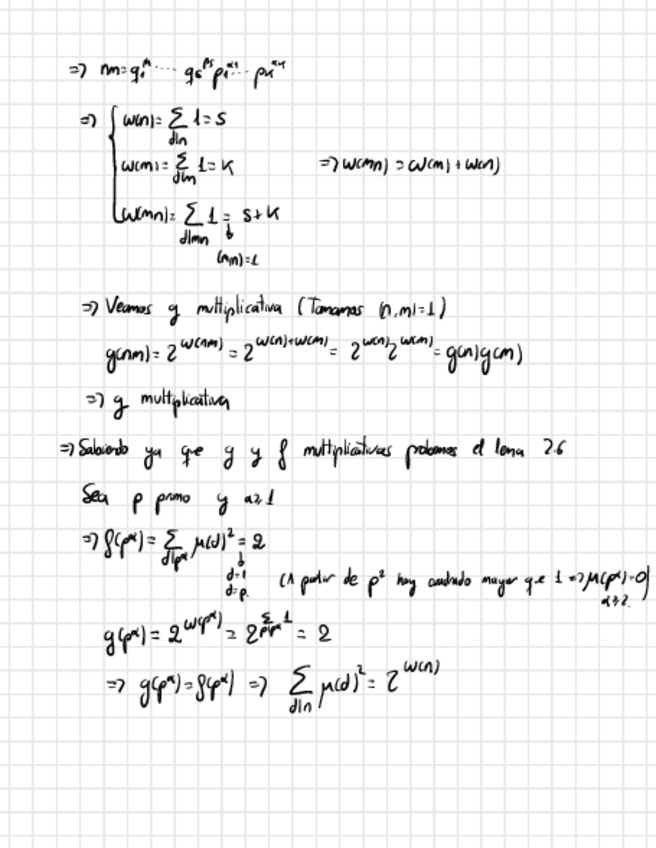 => nm = q₁^β₁ ... qs^βs p₁^α₁ ... pk^αk
=> { w(n) = Σ_{d|n} 1 = s
w(m) = Σ_{d|m} 1 = k => w(mn) = w(m) + w(n)
w(mn) = Σ_{d|mn} 1 = s+k
(m,n)=1
=> Veamos g multiplicativa (Tomamos (n,m)=1)
g(nm) = 2^{w(nm)} = 2^{w(n)+w(m)} = 2^{w(n)} 2^{w(m)} = g(n)g(m)
=> g multiplicativa
=> Sabiendo ya que g y f multiplicativas probamos el lema 2.6
Sea p primo y α≥1
=> f(p^α) = Σ_{d|p^α} μ(d)² = 2
d=1
d=p. (A partir de p² hay cuadrado mayor que 1 => μ(p^α)=0)
α≥2.
g(p^α) = 2^{w(p^α)} = 2^{Σ_{p|p^α} 1} = 2
=> g(p^α) = f(p^α) => Σ_{d|n} μ(d)² = 2^{w(n)}